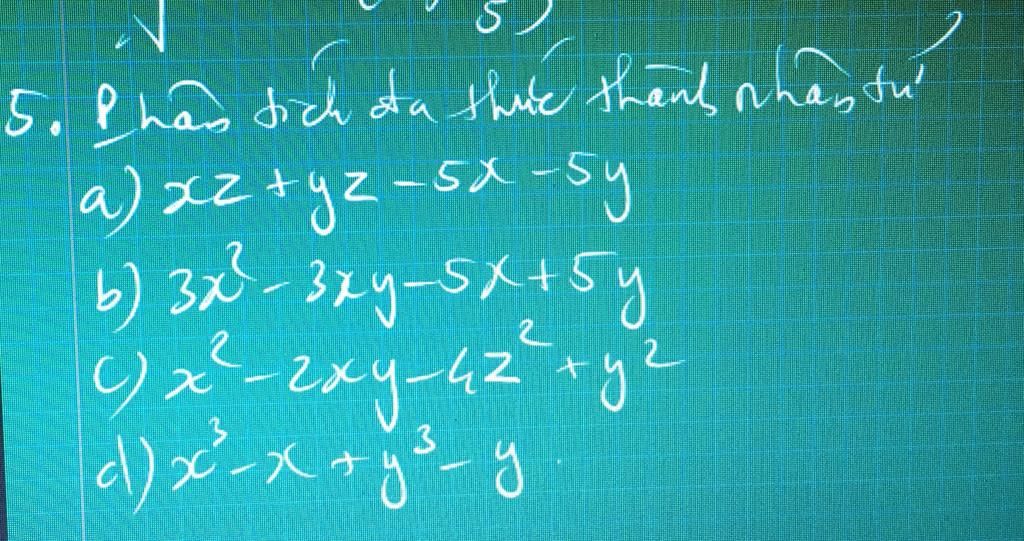 5)
5. Phân tích đa thức thành nhân tử
a) xz + yz - 5x - 5y
b) 3x² - 3xy - 5x + 5y
c) x² - 2xy - 4z² + y²
d) x³ - x + y³ - y